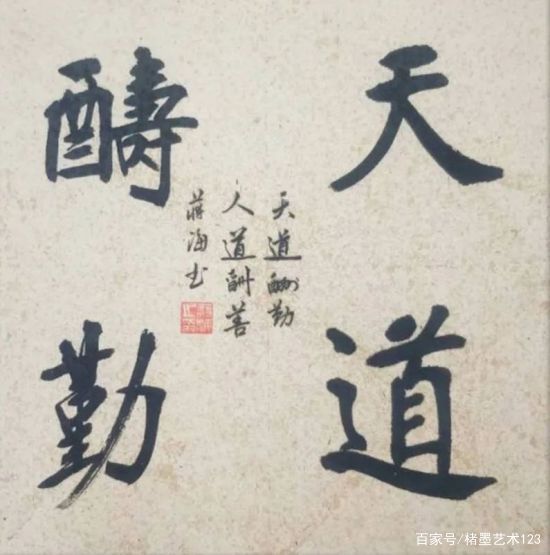 天道
醻勤
天道酬勤
人道酬善
蒋海书
百家号/楮墨艺术123